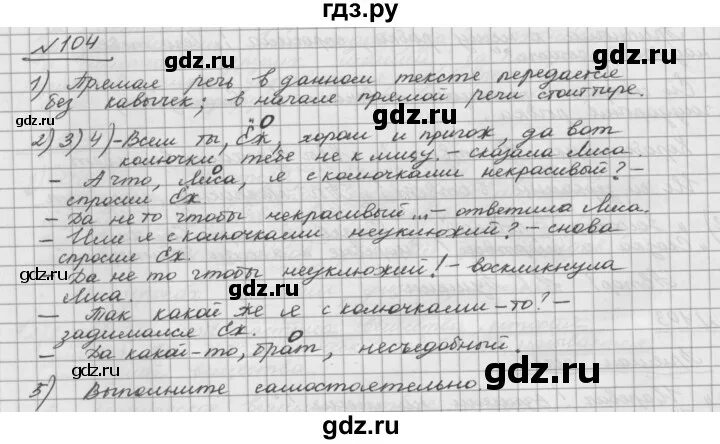 гдз.ру
№104
1) Прямая речь в данном тексте передается
без кавычек; в начале прямой речи стоит тире.
2) 3) 4) – Всем ты, Ёж, хорош и пригож, да вот
колючки тебе не к лицу. – сказала Лиса.
– А что, Лиса, я с колючками некрасивый? –
спросил Ёж.
– Да не то чтобы некрасивый... – ответила Лиса.
– Или я с колючками неуклюжий? – снова
спросил Ёж.
– Да не то чтобы неуклюжий! – воскликнула
Лиса.
– Так какой же я с колючками-то? –
задумался Ёж.
– Да какой-то, брат, несъедобный.
5) Выполните самостоятельно.
gdz.ru
gdz.ru
gdz.ru
gdz.ru
gdz.ru
gdz.ru
gdz.ru
gdz.ru